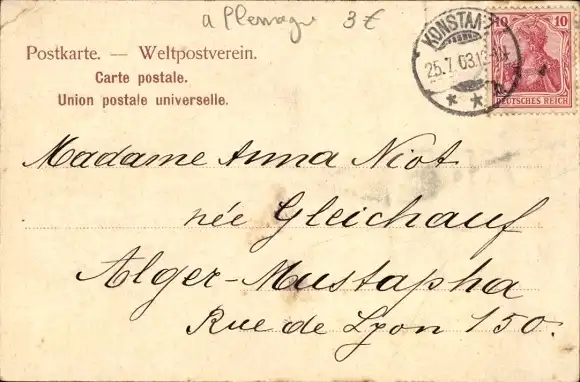 a Allemagne 3€
Postkarte. — Weltpostverein.
Carte postale.
Union postale universelle.
KONSTA
25.7.03.
10 10
DEUTSCHES REICH
Madame Anna Niot
née Gleichauf
Alger-Mustapha
Rue de Lyon 150.